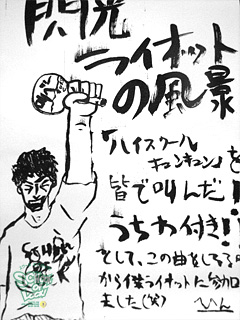 閃光
ライオット
の風景
「ハイスクール
キュンキュン」を
皆で叫んだ!
うちわ付き!!
そして、この曲をしろろ
から僕ライオットに参加
ました(笑)